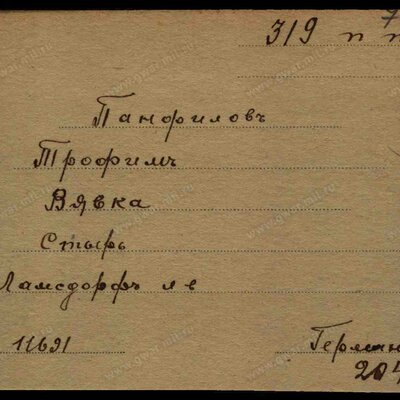 319 п п
Панфиловъ
Трофимъ
Вявка
Стырь
Ламсдорфъ ле
11691
Герман
204